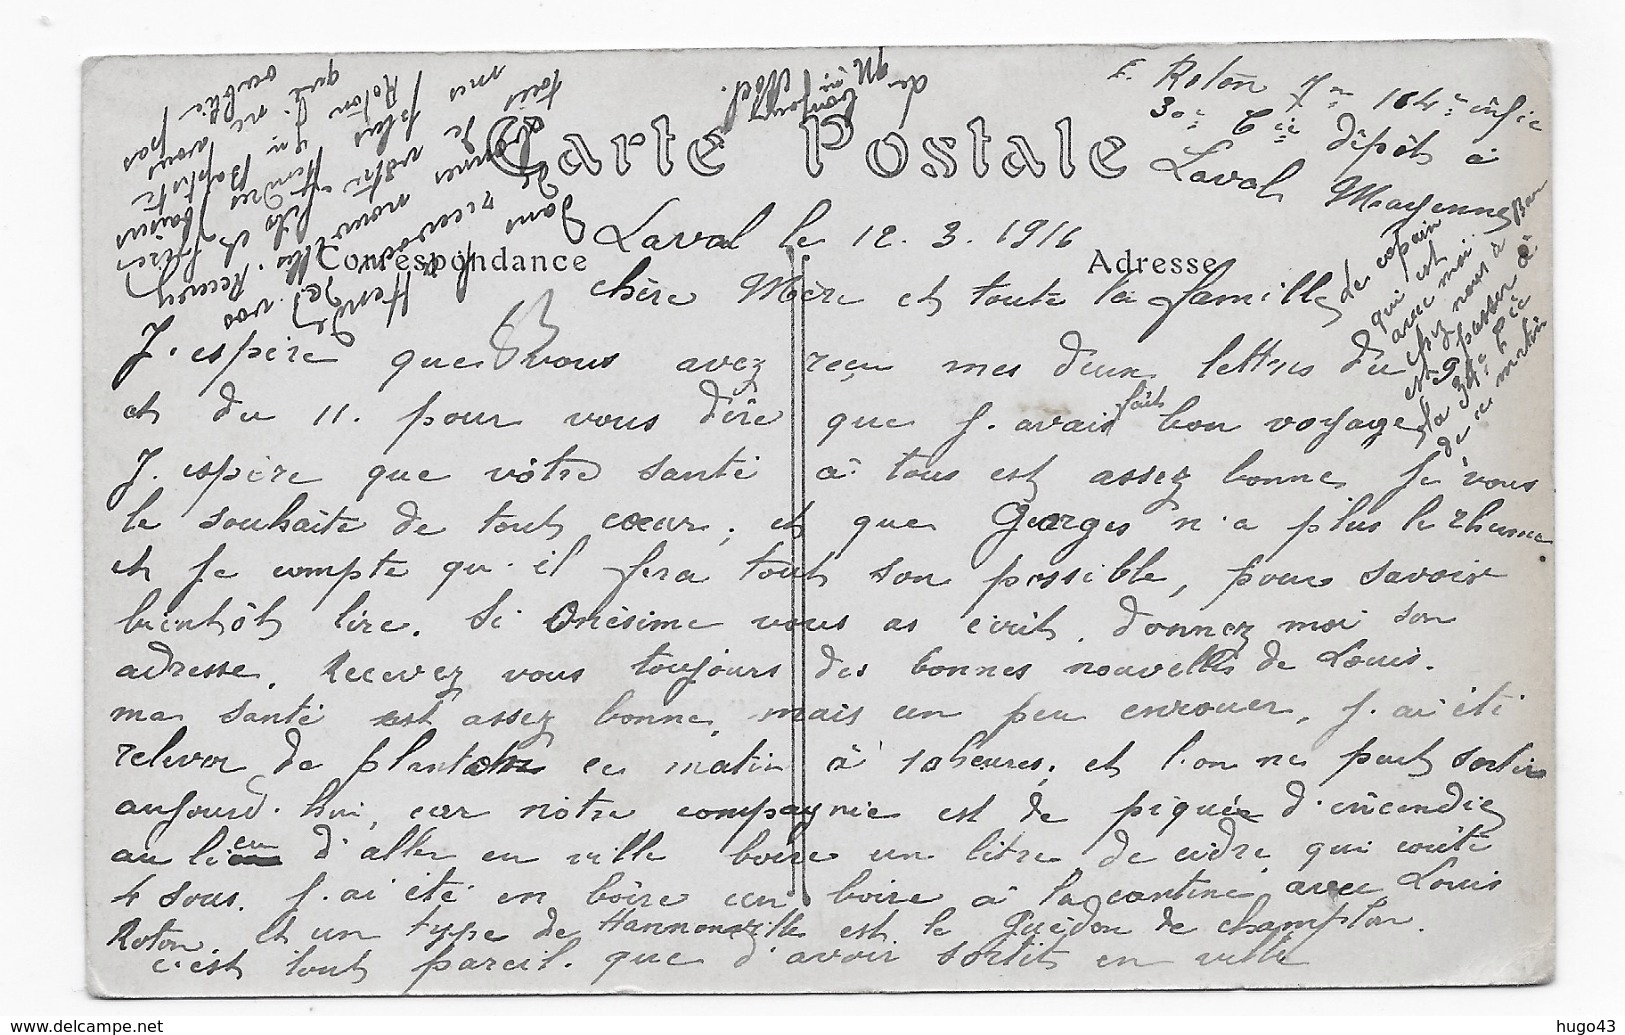 E. Roton 104e infie
30e Cie dépôt à
Laval Mayenne
Carte Postale
Correspondance
Adresse
Laval le 12. 3. 1916
chère Mère et toute la famille
J. espère que vous avez reçu mes deux lettres du 9
et du 11. pour vous dire que j. avais fait bon voyage
J. espère que vôtre santé à tous est assez bonne je vous
le souhaite de tout coeur, et que Georges n'a plus le rhume
et je compte qu'il fera tout son possible, pour savoir
bientôt lire. Si Onésime vous as écrit. donnez moi son
adresse. Recevez vous toujours des bonnes nouvelles de Louis.
ma santé est assez bonne, mais un peu enrouer, j. ai été
relever de planton ce matin à 10 heures, et l'on ne peut sortir
aujourd'hui, car nôtre compagnie est de piquée d'incendie
au lieu d'aller en ville boire un litre de cidre qui coûte
4 sous. j. ai été en boire un boire à la cantine avec Louis
Roton. et un type de Hannonville est le Guédon de champlon.
c'est tout pareil. que d'avoir sortit en ville
de copain
qui est
avec moi
chez nous à Bar
est passer à
la 34e Cie
de ce matin
dans
recevant
de vos nouvelles. Recevez
bonnes
de votre fils et frère
plus tendres baisers
Roton
Baptiste
qui ne vous
oublie pas
tous
mes
de
bonjour
Noël.
hugo43
www.delcampe.net